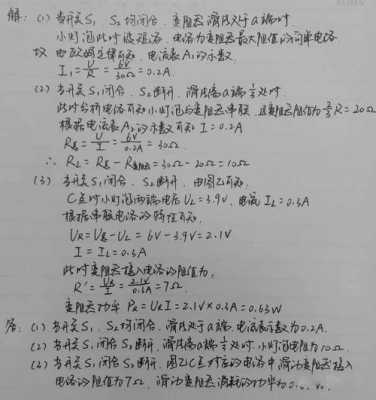 解：(1) 当开关S₁ S₂均闭合，变阻器滑片处于a端时
小灯泡此时被短路，电路为变阻器最大阻值的简单电路
故 由欧姆定律可知，电流表A₁的示数
I₁=U/R=6V/30Ω=0.2A.
(2) 当开关S₁闭合．S₂断开．滑片离a端⅓处时．
此时分析电路可知小灯泡与变阻器串联．且变阻器阻值为⅔R=20Ω
根据电流表A₁的示数可知 I=0.2A
R总=U/I=6V/0.2A=30Ω．
∴ RL=R总-R变阻器=30Ω-20Ω=10Ω
(3) 当开关S₁闭合．S₂断开．由图乙可知．
C点时小灯泡两端电压UL=3.9V．电流IL=0.3A
根据串联电路的特征可知．
UR=U总-UL=6V-3.9V=2.1V
I=IL=0.3A
此时变阻器接入电路的阻值为．
R'=UR/I=2.1V/0.3A=7Ω．
变阻器功率 PR=URI=2.1V×0.3A=0.63W
答：(1) 当开关S₁．S₂均闭合．滑片处于a端．电流表示数为0.2A.
(2) 当开关S₁闭合S₂断开．滑片离a端⅓处时．小灯泡阻值为10Ω
(3) 当开关S₁闭合S₂断开．图乙C点对应的电路中滑动变阻器接入
电路的阻值为7Ω．滑动变阻器消耗的功率为0.